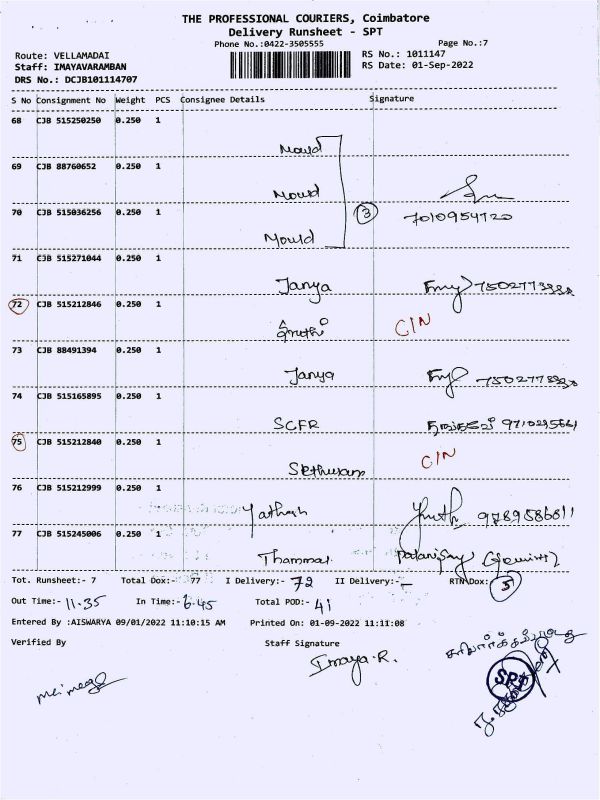 THE PROFESSIONAL COURIERS, Coimbatore
Delivery Runsheet - SPT
Phone No.:0422-3505555 Page No.:7
Route: VELLAMADAI RS No.: 1011147
Staff: IMAYAVARAMBAN RS Date: 01-Sep-2022
DRS No.: DCJB101114707
S No Consignment No Weight PCS Consignee Details Signature
68 CJB 515250250 0.250 1
Mould
69 CJB 88760652 0.250 1
Mould
70 CJB 515036256 0.250 1 3 7010954720
Mould
71 CJB 515271044 0.250 1
Janya
72 CJB 515212846 0.250 1
C/N
73 CJB 88491394 0.250 1
Janya
74 CJB 515165895 0.250 1
SCFR
75 CJB 515212840 0.250 1
C/N
76 CJB 515212999 0.250 1
Yathish 9789586811
77 CJB 515245006 0.250 1
Thammai
Tot. Runsheet:- 7 Total Dox:- 77 I Delivery:- 72 II Delivery:- – RTN Dox: 5
Out Time:- 11.35 In Time:- 6.45 Total POD:- 41
Entered By :AISWARYA 09/01/2022 11:10:15 AM Printed On: 01-09-2022 11:11:08
Verified By Staff Signature
Imaya.R.
SPT